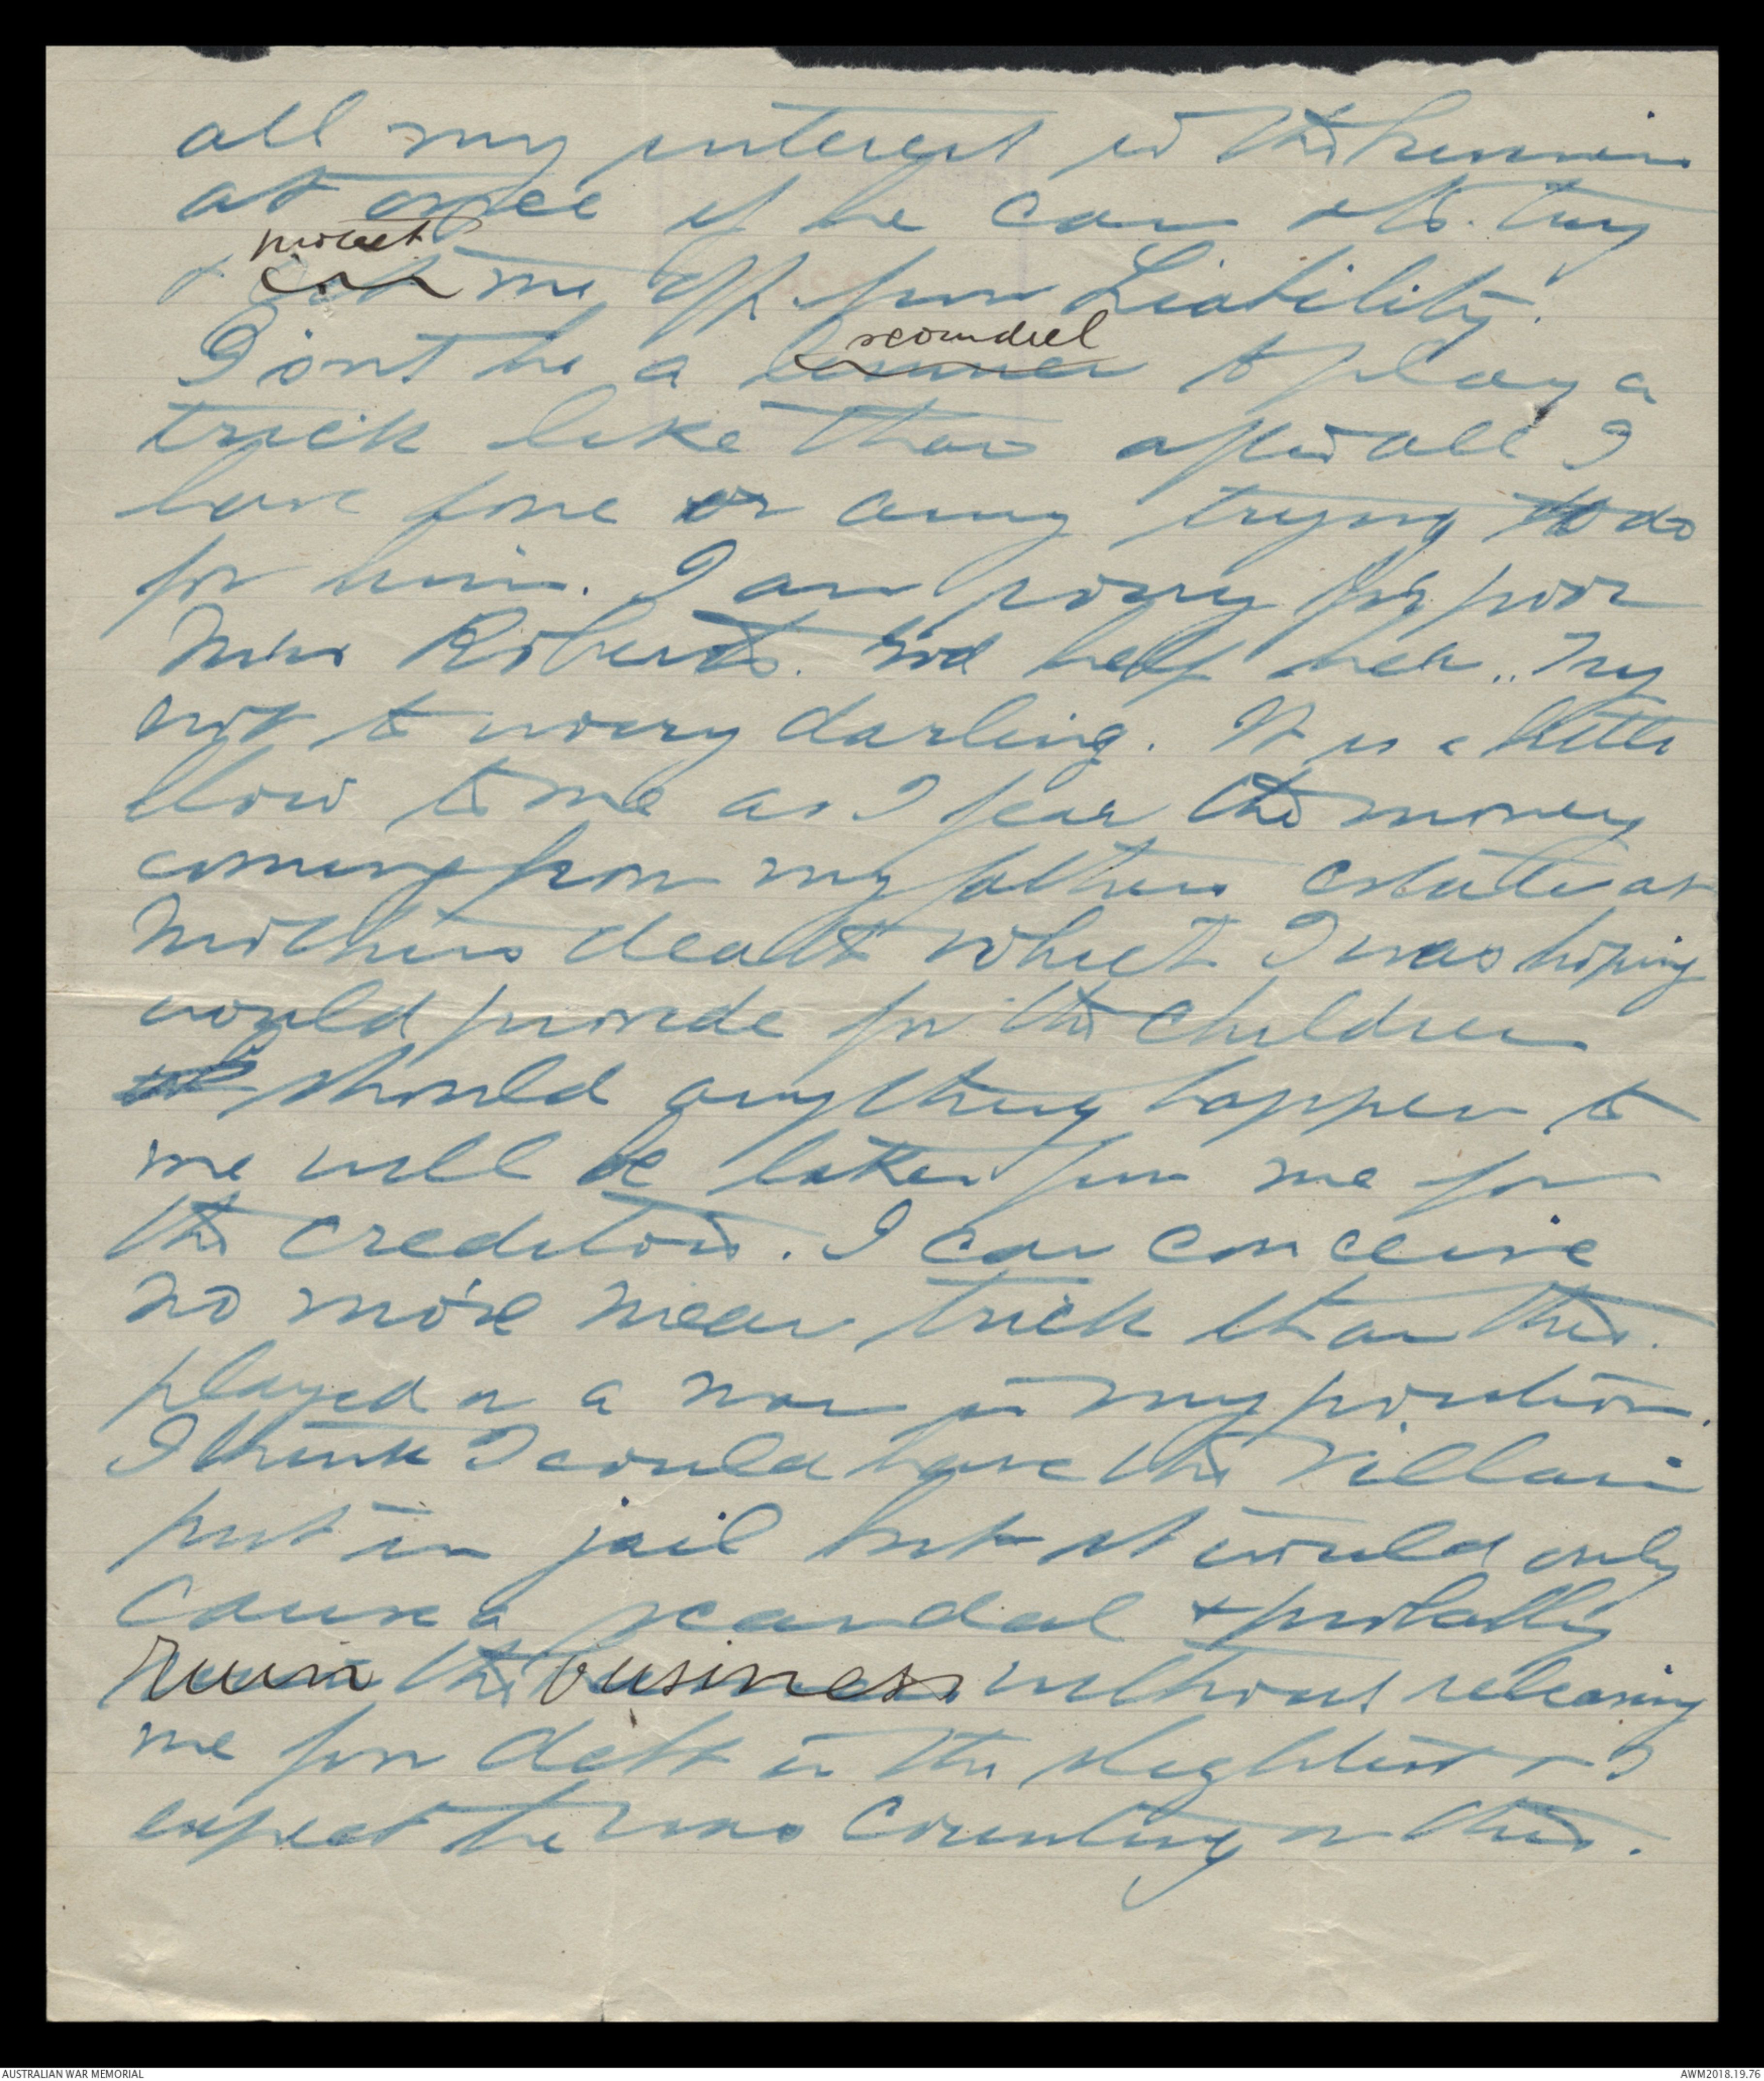 all my interest in the business
at once if he can & to try
protect
& get me off from Liability.
scoundrel
Isn't he a to play a
trick like this after all I
have done or am trying to do
for him. I am sorry for poor
Miss Roberts. God help her.. Try
not to worry darling. It is a bitter
blow to me as I fear the money
coming from my fathers estate at
Mothers death which I was hoping
would provide for the children
should anything happen to
me will be taken from me for
the creditors. I can conceive
no more mean trick than this.
played on a man in my position.
I think I could have the Villain
put in jail but it would only
cause a scandal & probably
ruin the business without releasing
me from debt in the slightest & I
expect he was counting on this.
AUSTRALIAN WAR MEMORIAL
AWM2018.19.76